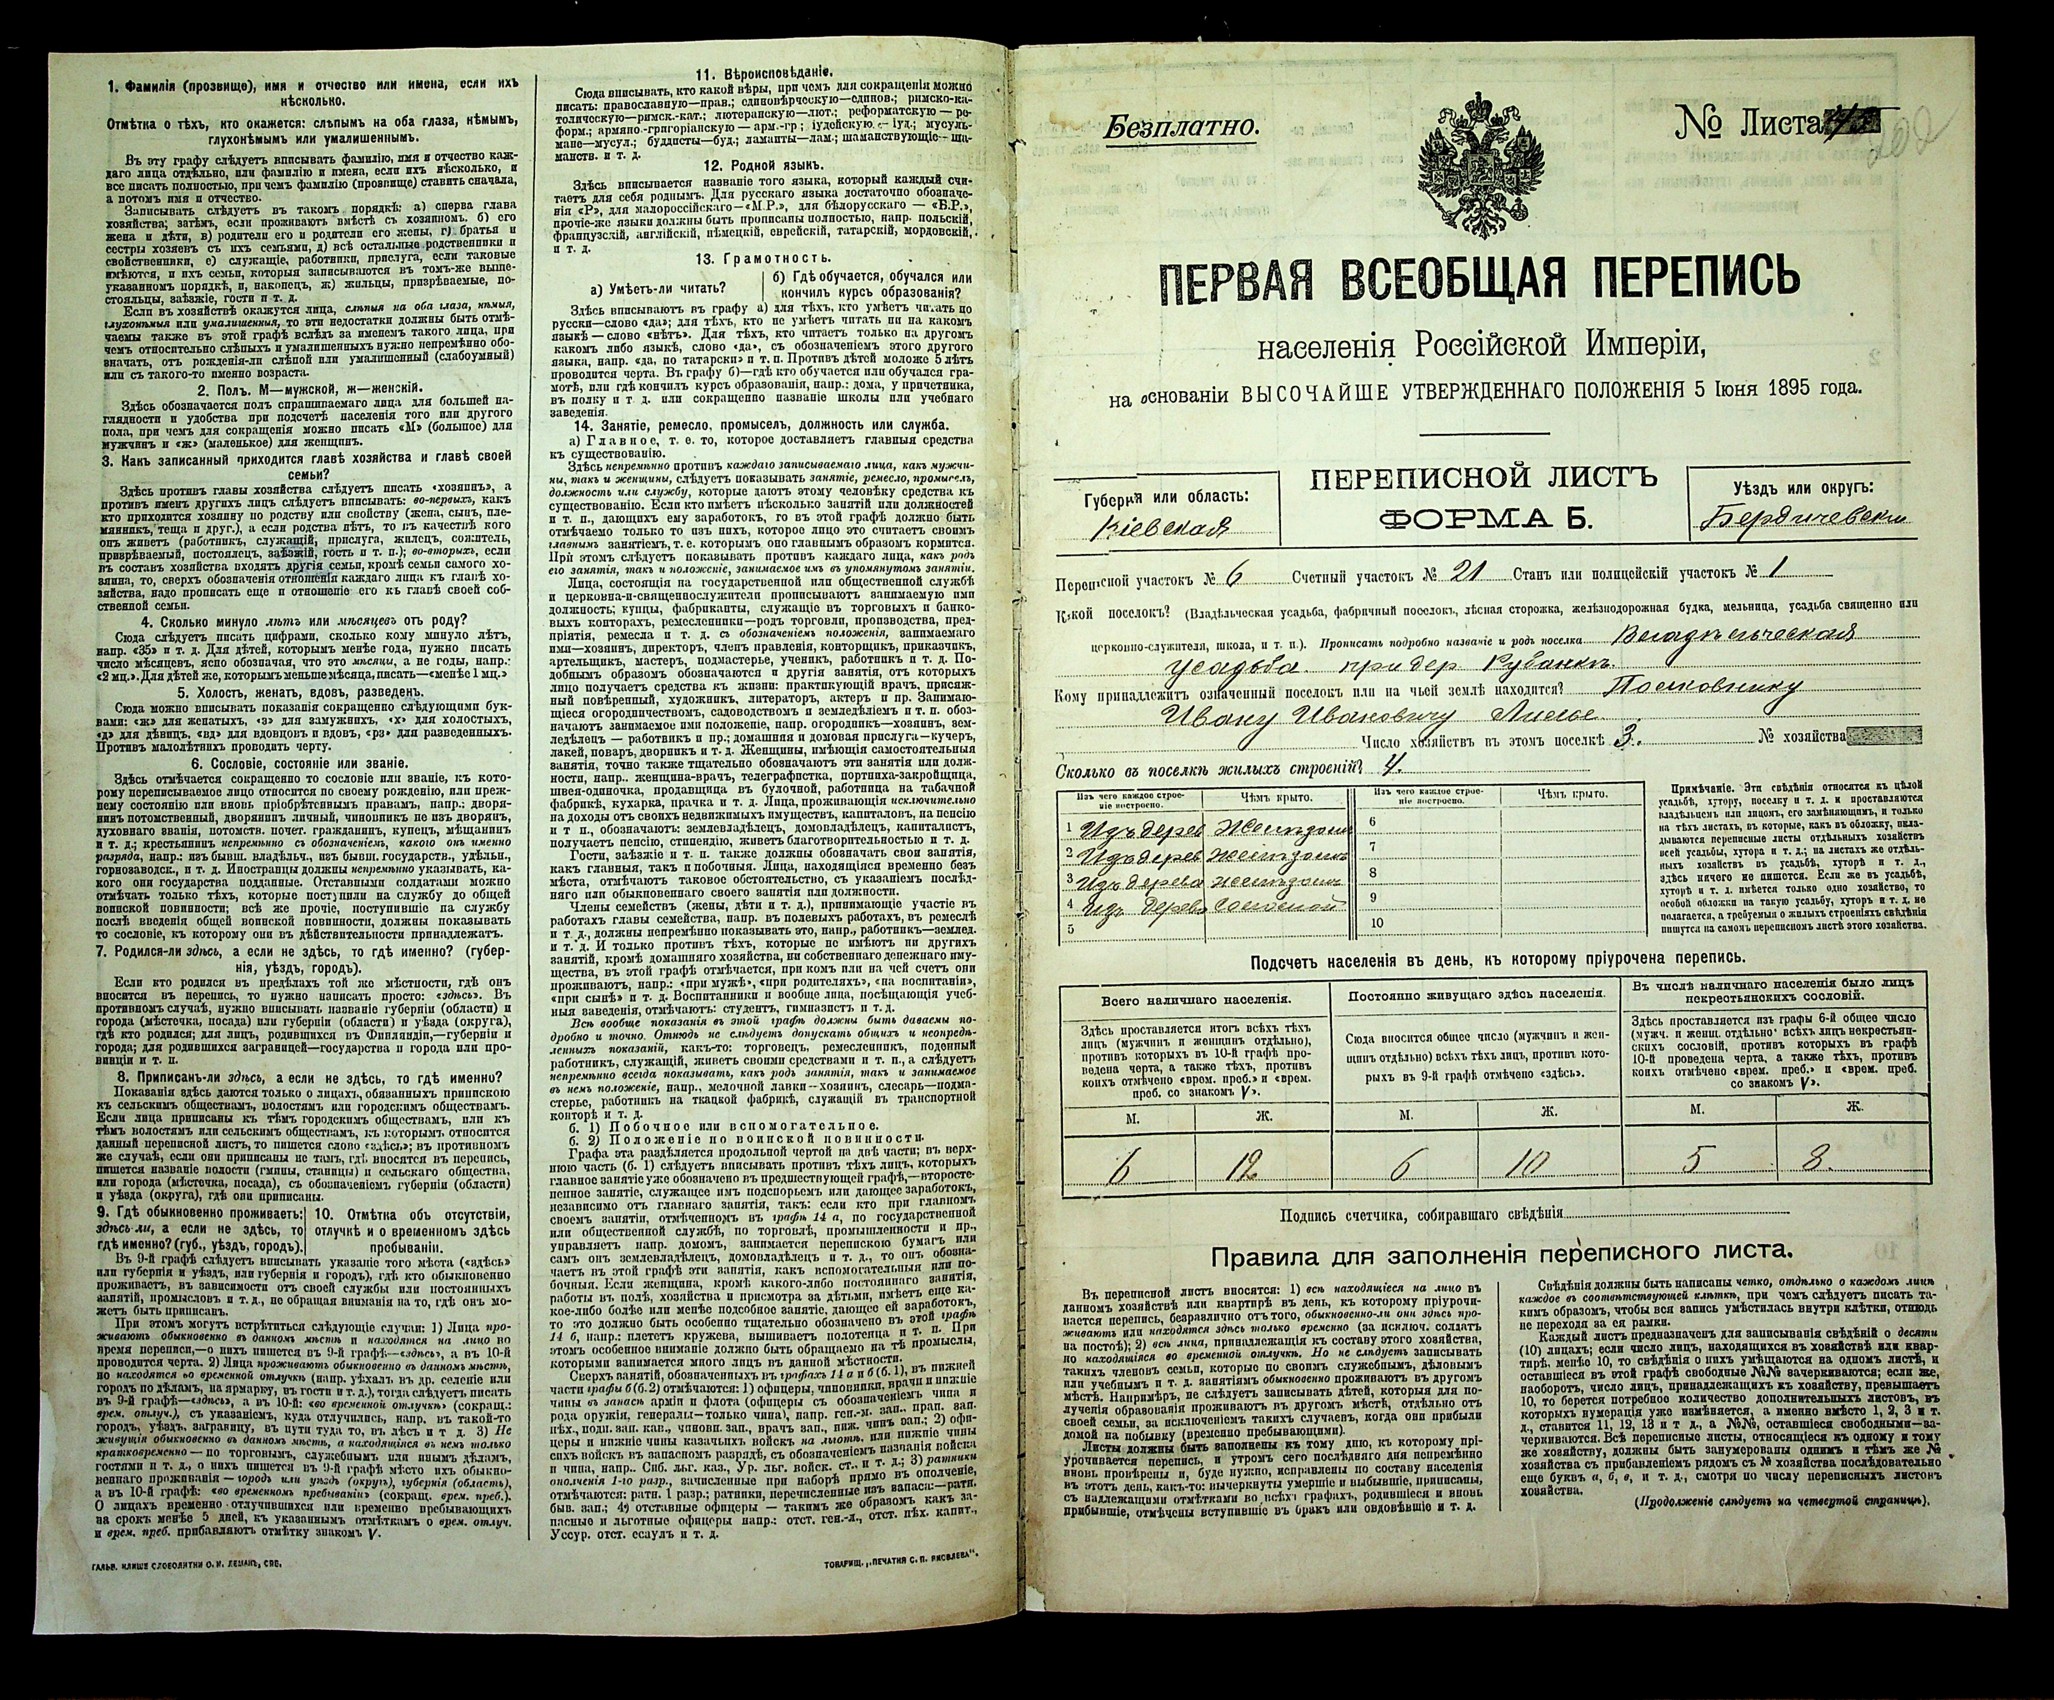 1. Фамилія (прозвище), имя и отчество или имена, если ихъ
нѣсколько.
Отмѣтка о тѣхъ, кто окажется: слѣпымъ на оба глаза, нѣмымъ,
глухонѣмымъ или умалишеннымъ.
Въ эту графу слѣдуетъ вписывать фамилію, имя и отчество каж-
даго лица отдѣльно, или фамилію и имена, если ихъ нѣсколько, и
все писать полностью, при чемъ фамилію (прозвище) ставить сначала,
а потомъ имя и отчество.
Записывать слѣдуетъ въ такомъ порядкѣ: а) сперва глава
хозяйства; затѣмъ, если проживаютъ вмѣстѣ съ хозяиномъ. б) его
жена и дѣти, в) родители его и родители его жены, г) братья и
сестры хозяевъ съ ихъ семьями, д) всѣ остальные родственники и
свойственники, е) служащіе, работники, прислуга, если таковые
имѣются, и ихъ семьи, которыя записываются въ томъ-же выше-
указанномъ порядкѣ, и, наконецъ, ж) жильцы, призрѣваемые, по-
стояльцы, заѣзжіе, гости и т. д.
Если въ хозяйствѣ окажутся лица, слѣпыя на оба глаза, нѣмыя,
глухонѣмыя или умалишенныя, то эти недостатки должны быть отмѣ-
чаемы также въ этой графѣ вслѣдъ за именемъ такого лица, при
чемъ относительно слѣпыхъ и умалишенныхъ нужно непремѣнно обо-
значать, отъ рожденія-ли слѣпой или умалишенный (слабоумный)
или съ такого-то именно возраста.
2. Полъ. М—мужской, ж—женскій.
Здѣсь обозначается полъ спрашиваемаго лица для большей на-
глядности и удобства при подсчетѣ населенія того или другого
пола, при чемъ для сокращенія можно писать «М» (большое) для
мужчинъ и «ж» (маленькое) для женщинъ.
3. Какъ записанный приходится главѣ хозяйства и главѣ своей
семьи?
Здѣсь противъ главы хозяйства слѣдуетъ писать «хозяинъ», а
противъ именъ другихъ лицъ слѣдуетъ вписывать: во-первыхъ, какъ
кто приходится хозяину по родству или свойству (жена, сынъ, пле-
мянникъ, теща и друг.), а если родства нѣтъ, то въ качествѣ кого
онъ живетъ (работникъ, служащій, прислуга, жилецъ, сожитель,
призрѣваемый, постоялецъ, заѣзжій, гость и т. п.); во-вторыхъ, если
въ составъ хозяйства входятъ другія семьи, кромѣ семьи самого хо-
зяина, то, сверхъ обозначенія отношенія каждаго лица къ главѣ хо-
зяйства, надо прописать еще и отношеніе его къ главѣ своей соб-
ственной семьи.
4. Сколько минуло лѣтъ или мѣсяцевъ отъ роду?
Сюда слѣдуетъ писать цифрами, сколько кому минуло лѣтъ,
напр. «35» и т. д. Для дѣтей, которымъ менѣе года, нужно писать
число мѣсяцевъ, ясно обозначая, что это мѣсяцы, а не годы, напр.:
«2 мц.». Для дѣтей же, которымъ меньше мѣсяца, писать—«менѣе 1 мц.»
5. Холостъ, женатъ, вдовъ, разведенъ.
Сюда можно вписывать показанія сокращенно слѣдующими бук-
вами: «ж» для женатыхъ, «з» для замужнихъ, «х» для холостыхъ,
«д» для дѣвицъ, «вд» для вдовцовъ и вдовъ, «рз» для разведенныхъ.
Противъ малолѣтнихъ проводить черту.
6. Сословіе, состояніе или званіе.
Здѣсь отмѣчается сокращенно то сословіе или званіе, къ кото-
рому переписываемое лицо относится по своему рожденію, или преж-
нему состоянію или вновь пріобрѣтеннымъ правамъ, напр.: дворя-
нинъ потомственный, дворянинъ личный, чиновникъ не изъ дворянъ,
духовнаго званія, потомств. почет. гражданинъ, купецъ, мѣщанинъ
и т. д.; крестьянинъ непремѣнно съ обозначеніемъ, какого онъ именно
разряда, напр.: изъ бывш. владѣльч., изъ бывш. государств., удѣльн.,
горнозаводск., и т. д. Иностранцы должны непремѣнно указывать, ка-
кого они государства подданные. Отставными солдатами можно
отмѣчать только тѣхъ, которые поступили на службу до общей
воинской повинности; всѣ же прочіе, поступившіе на службу
послѣ введенія общей воинской повинности, должны показывать
то сословіе, къ которому они въ дѣйствительности принадлежатъ.
7. Родился-ли здѣсь, а если не здѣсь, то гдѣ именно? (губер-
нія, уѣздъ, городъ).
Если кто родился въ предѣлахъ той же мѣстности, гдѣ онъ
вносится въ перепись, то нужно написать просто: «здѣсь». Въ
противномъ случаѣ, нужно вписывать названіе губерніи (области) и
города (мѣстечка, посада) или губерніи (области) и уѣзда (округа),
гдѣ кто родился; для лицъ, родившихся въ Финляндіи,—губерніи и
города; для родившихся заграницей—государства и города или про-
винціи и т. п.
8. Приписанъ-ли здѣсь, а если не здѣсь, то гдѣ именно?
Показанія здѣсь даются только о лицахъ, обязанныхъ припискою
къ сельскимъ обществамъ, волостямъ или городскимъ обществамъ.
Если лица приписаны къ тѣмъ городскимъ обществамъ, или къ
тѣмъ волостямъ или сельскимъ обществамъ, къ которымъ относится
данный переписной листъ, то пишется слово «здѣсь»; въ противномъ
же случаѣ, если они приписаны не тамъ, гдѣ вносятся въ перепись,
пишется названіе волости (гмины, станицы) и сельскаго общества,
или города (мѣстечка, посада), съ обозначеніемъ губерніи (области)
и уѣзда (округа), гдѣ они приписаны.
9. Гдѣ обыкновенно проживаетъ:
здѣсь-ли, а если не здѣсь, то
гдѣ именно? (губ., уѣздъ, городъ).
10. Отмѣтка объ отсутствіи,
отлучкѣ и о временномъ здѣсь
пребываніи.
Въ 9-й графѣ слѣдуетъ вписывать указаніе того мѣста («здѣсь»
или губернія и уѣздъ, или губернія и городъ), гдѣ кто обыкновенно
проживаетъ, въ зависимости отъ своей службы или постоянныхъ
занятій, промысловъ и т. д., не обращая вниманія на то, гдѣ онъ мо-
жетъ быть приписанъ.
При этомъ могутъ встрѣтиться слѣдующіе случаи: 1) Лица про-
живаютъ обыкновенно въ данномъ мѣстѣ и находятся на лицо во
время переписи,—о нихъ пишется въ 9-й графѣ—«здѣсь», а въ 10-й
проводится черта. 2) Лица проживаютъ обыкновенно въ данномъ мѣстѣ,
но находятся во временной отлучкѣ (напр. уѣхалъ въ др. селеніе или
городъ по дѣламъ, на ярмарку, въ гости и т. д.), тогда слѣдуетъ писать
въ 9-й графѣ—«здѣсь», а въ 10-й: «во временной отлучкѣ» (сокращ.:
врем. отлуч.), съ указаніемъ, куда отлучились, напр. въ такой-то
городъ, уѣздъ, заграницу, въ пути туда то, въ лѣсъ и т д. 3) Не
живущія обыкновенно въ данномъ мѣстѣ, а находящіяся въ немъ только
кратковременно — по торговымъ, служебнымъ или инымъ дѣламъ,
гостями и т. д., о нихъ пишется въ 9-й графѣ мѣсто ихъ обыкно-
веннаго проживанія — городъ или уѣздъ (округъ), губернія (область),
а въ 10-й графѣ: «во временномъ пребываніи» (сокращ. врем. преб.).
О лицахъ временно отлучившихся или временно пребывающихъ
на срокъ менѣе 5 дней, къ указаннымъ отмѣткамъ о врем. отлуч.
и врем. преб. прибавляютъ отмѣтку знакомъ V.
ГАЛЬВ. КЛИШЕ СЛОВОЛИТНИ О. И. ЛЕМАНЪ, СПБ.
11. Вѣроисповѣданіе.
Сюда вписывать, кто какой вѣры, при чемъ для сокращенія можно
писать: православную—прав.; единовѣрческую—единов.; римско-ка-
толическую—римск.-кат.; лютеранскую—лют.; реформатскую — ре-
форм.; армяно-григоріанскую — арм.-гр; іудейскую — іуд.; мусуль-
мане—мусул.; буддисты—буд.; ламаиты—лам.; шаманствующіе—ша-
манств. и т. д.
12. Родной языкъ.
Здѣсь вписывается названіе того языка, который каждый счи-
таетъ для себя роднымъ. Для русскаго языка достаточно обозначе-
нія «Р», для малороссійскаго—«М.Р.», для бѣлорусскаго — «Б.Р.»,
прочіе-же языки должны быть прописаны полностью, напр. польскій,
французскій, англійскій, нѣмецкій, еврейскій, татарскій, мордовскій,
и т. д.
13. Грамотность.
а) Умѣетъ-ли читать?
б) Гдѣ обучается, обучался или
кончилъ курсъ образованія?
Здѣсь вписываютъ въ графу а) для тѣхъ, кто умѣетъ читать по
русски—слово «да»; для тѣхъ, кто не умѣетъ читать ни на какомъ
языкѣ — слово «нѣтъ». Для тѣхъ, кто читаетъ только на другомъ
какомъ либо языкѣ, слово «да», съ обозначеніемъ этого другого
языка, напр. «да, по татарски» и т. п. Противъ дѣтей моложе 5 лѣтъ
проводится черта. Въ графу б)—гдѣ кто обучается или обучался гра-
мотѣ, или гдѣ кончилъ курсъ образованія, напр.: дома, у причетника,
въ полку и т д. или сокращенно названіе школы или учебнаго
заведенія.
14. Занятіе, ремесло, промыселъ, должность или служба.
а) Главное, т. е. то, которое доставляетъ главныя средства
къ существованію.
Здѣсь непремѣнно противъ каждаго записываемаго лица, какъ мужчи-
ны, такъ и женщины, слѣдуетъ показывать занятіе, ремесло, промыселъ,
должность или службу, которые даютъ этому человѣку средства къ
существованію. Если кто имѣетъ нѣсколько занятій или должностей
и т. п., дающихъ ему заработокъ, то въ этой графѣ должно быть
отмѣчаемо только то изъ нихъ, которое лицо это считаетъ своимъ
главнымъ занятіемъ, т. е. которымъ оно главнымъ образомъ кормится.
При этомъ слѣдуетъ показывать противъ каждаго лица, какъ родъ
его занятія, такъ и положеніе, занимаемое имъ въ упомянутомъ занятіи.
Лица, состоящія на государственной или общественной службѣ
и церковно-и-священнослужители прописываютъ занимаемую ими
должность; купцы, фабриканты, служащіе въ торговыхъ и банко-
выхъ конторахъ, ремесленники—родъ торговли, производства, пред-
пріятія, ремесла и т. д. съ обозначеніемъ положенія, занимаемаго
ими—хозяинъ, директоръ, членъ правленія, конторщикъ, приказчикъ,
артельщикъ, мастеръ, подмастерье, ученикъ, работникъ и т. д. По-
добнымъ образомъ обозначаются и другія занятія, отъ которыхъ
лицо получаетъ средства къ жизни: практикующій врачъ, присяж-
ный повѣренный, художникъ, литераторъ, актеръ и пр. Занимаю-
щіеся огородничествомъ, садоводствомъ и земледѣліемъ и т. п. обоз-
начаютъ занимаемое ими положеніе, напр. огородникъ—хозяинъ, зем-
ледѣлецъ — работникъ и пр.; домашняя и домовая прислуга—кучеръ,
лакей, поваръ, дворникъ и т. д. Женщины, имѣющія самостоятельныя
занятія, точно также тщательно обозначаютъ эти занятія или долж-
ности, напр.. женщина-врачъ, телеграфистка, портниха-закройщица,
швея-одиночка, продавщица въ булочной, работница на табачной
фабрикѣ, кухарка, прачка и т. д. Лица, проживающія исключительно
на доходы отъ своихъ недвижимыхъ имуществъ, капиталовъ, на пенсію
и т п., обозначаютъ: землевладѣлецъ, домовладѣлецъ, капиталистъ,
получаетъ пенсію, стипендію, живетъ благотворительностью и т. д.
Гости, заѣзжіе и т. п. также должны обозначать свои занятія,
какъ главныя, такъ и побочныя. Лица, находящіяся временно безъ
мѣста, отмѣчаютъ таковое обстоятельство, съ указаніемъ послѣд-
няго или обыкновеннаго своего занятія или должности.
Члены семействъ (жены, дѣти и т. д.), принимающіе участіе въ
работахъ главы семейства, напр. въ полевыхъ работахъ, въ ремеслѣ
и т. д., должны непремѣнно показывать это, напр., работникъ—землед.
и т. д. И только противъ тѣхъ, которые не имѣютъ ни другихъ
занятій, кромѣ домашняго хозяйства, ни собственнаго денежнаго иму-
щества, въ этой графѣ отмѣчается, при комъ или на чей счетъ они
проживаютъ, напр.: «при мужѣ», «при родителяхъ», «на воспитаніи»,
«при сынѣ» и т. д. Воспитанники и вообще лица, посѣщающія учеб-
ныя заведенія, отмѣчаютъ: студентъ, гимназистъ и т. д.
Всѣ вообще показанія въ этой графѣ должны быть даваемы по-
дробно и точно. Отнюдь не слѣдуетъ допускать общихъ и неопредѣ-
ленныхъ показаній, какъ-то: торговецъ, ремесленникъ, поденный
работникъ, служащій, живетъ своими средствами и т. п., а слѣдуетъ
непремѣнно всегда показывать, какъ родъ занятія, такъ и занимаемое
въ немъ положеніе, напр., мелочной лавки--хозяинъ, слесарь—подма-
стерье, работникъ на ткацкой фабрикѣ, служащій въ транспортной
конторѣ и т. д.
б. 1) Побочное или вспомогательное.
б. 2) Положеніе по воинской повинности.
Графа эта раздѣляется продольной чертой на двѣ части; въ верх-
нюю часть (б. 1) слѣдуетъ вписывать противъ тѣхъ лицъ, которыхъ
главное занятіе уже обозначено въ предшествующей графѣ,—второсте-
пенное занятіе, служащее имъ подспорьемъ или дающее заработокъ,
независимо отъ главнаго занятія, такъ: если кто при главномъ
своемъ занятіи, отмѣченномъ въ графѣ 14 а, по государственной
или общественной службѣ, по торговлѣ, промышленности и пр.,
управляетъ напр. домомъ, занимается перепискою бумагъ или
самъ онъ землевладѣлецъ, домовладѣлецъ и т. д., то онъ обозна-
чаетъ въ этой графѣ эти занятія, какъ вспомогательныя или по-
бочныя. Если женщина, кромѣ какого-либо постояннаго занятія,
работы въ полѣ, хозяйства и присмотра за дѣтьми, имѣетъ еще ка-
кое-либо болѣе или менѣе подсобное занятіе, дающее ей заработокъ,
то это должно быть особенно тщательно обозначено въ этой графѣ
14 б, напр.: плететъ кружева, вышиваетъ полотенца и т. п. При
этомъ особенное вниманіе должно быть обращаемо на тѣ промыслы,
которыми занимается много лицъ въ данной мѣстности.
Сверхъ занятій, обозначенныхъ въ графахъ 14 а и б (б. 1), въ нижней
части графы б (б. 2) отмѣчаются: 1) офицеры, чиновники, врачи и нижніе
чины въ запасѣ арміи и флота (офицеры съ обозначеніемъ чина и
рода оружія, генералы—только чина), напр. ген.-м. зап., прап. зап.
пѣх., подп. зап. кав., чиновн. зап., врачъ зап., ниж. чинъ зап.; 2) офи-
церы и нижніе чины казачьихъ войскъ на льготѣ, или нижніе чины
сихъ войскъ въ запасномъ разрядѣ, съ обозначеніемъ названія войска
и чина, напр., Сиб. льг. каз., Ур. льг. войск. ст., и т. д.; 3) ратники
ополченія 1-го разр., зачисленные при наборѣ прямо въ ополченіе,
отмѣчаются: ратн. 1 разр.; ратники, перечисленные изъ запаса:—ратн.
быв. зап.; 4) отставные офицеры — такимъ же образомъ какъ за-
пасные и льготные офицеры напр.: отст. ген.-л., отст. пѣх. капит.,
Уссур. отст. есаулъ и т. д.
ТОВАРИЩ. „ПЕЧАТНЯ С. П. ЯКОВЛЕВА“.
Безплатно.
№ Листа
202
ПЕРВАЯ ВСЕОБЩАЯ ПЕРЕПИСЬ
населенія Россійской Имперіи,
на основаніи ВЫСОЧАЙШЕ УТВЕРЖДЕННАГО ПОЛОЖЕНІЯ 5 Іюня 1895 года.
ПЕРЕПИСНОЙ ЛИСТЪ
ФОРМА Б.
Губернія или область:
Кіевская
Уѣздъ или округъ:
Бердичевскій
Переписной участокъ № 6 Счетный участокъ № 21 Станъ или полицейскій участокъ № 1
Какой поселокъ? (Владѣльческая усадьба, фабричный поселокъ, лѣсная сторожка, желѣзнодорожная будка, мельница, усадьба священно или
церковно-служителя, школа, и т. п.). Прописать подробно названіе и родъ поселка Владѣльческая
усадьба при дер Кубанкѣ
Кому принадлежитъ означенный поселокъ или на чьей землѣ находится? Полковнику
Ивану Ивановичу
Число хозяйствъ въ этомъ поселкѣ 3. № хозяйства
Сколько въ поселкѣ жилыхъ строеній? 4.
Изъ чего каждое строе-
ніе построено. Чѣмъ крыто. Изъ чего каждое строе-
ніе построено. Чѣмъ крыто.
1 Изъ дерев Желѣзомъ 6
2 Изъ дерев Желѣзомъ 7
3 Изъ дерева Желѣзомъ 8
4 Изъ дерева Соломой 9
5 10
Примѣчаніе. Эти свѣдѣнія относятся къ цѣлой
усадьбѣ, хутору, поселку и т. д. и проставляются
владѣльцемъ или лицомъ, его замѣняющимъ, и только
на тѣхъ листахъ, въ которые, какъ въ обложку, вкла-
дываются переписные листы отдѣльныхъ хозяйствъ
всей усадьбы, хутора и т. д.; на листахъ же отдѣль-
ныхъ хозяйствъ въ усадьбѣ, хуторѣ и т. д.,
здѣсь ничего не пишется. Если же въ усадьбѣ,
хуторѣ и т. д. имѣется только одно хозяйство, то
особой обложки на такую усадьбу, хуторъ и т. д. не
полагается, а требуемыя о жилыхъ строеніяхъ свѣдѣнія
пишутся на самомъ переписномъ листѣ этого хозяйства.
Подсчетъ населенія въ день, къ которому пріурочена перепись.
Всего наличнаго населенія.
Здѣсь проставляется итогъ всѣхъ тѣхъ
лицъ (мужчинъ и женщинъ отдѣльно),
противъ которыхъ въ 10-й графѣ про-
ведена черта, а также тѣхъ, противъ
коихъ отмѣчено «врем. преб.» и «врем.
преб. со знакомъ V».
Постоянно живущаго здѣсь населенія.
Сюда вносится общее число (мужчинъ и жен-
щинъ отдѣльно) всѣхъ тѣхъ лицъ, противъ кото-
рыхъ въ 9-й графѣ отмѣчено «здѣсь».
Въ числѣ наличнаго населенія было лицъ
некрестьянскихъ сословій.
Здѣсь проставляется изъ графы 6-й общее число
(мужч. и женщ. отдѣльно) всѣхъ лицъ некрестьян-
скихъ сословій, противъ которыхъ въ графѣ
10-й проведена черта, а также тѣхъ, противъ
коихъ отмѣчено «врем. преб.» и «врем. преб.
со знакомъ V».
М. Ж. М. Ж. М. Ж.
6 12 6 10 5 8.
Подпись счетчика, собиравшаго свѣдѣнія
Правила для заполненія переписного листа.
Въ переписной листъ вносятся: 1) всѣ находящіеся на лицо въ
данномъ хозяйствѣ или квартирѣ въ день, къ которому пріурочи-
вается перепись, безразлично отъ того, обыкновенно-ли они здѣсь про-
живаютъ или находятся здѣсь только временно (за исключ. солдатъ
на постоѣ); 2) всѣ лица, принадлежащія къ составу этого хозяйства,
но находящіяся во временной отлучкѣ. Но не слѣдуетъ записывать
такихъ членовъ семьи, которые по своимъ служебнымъ, дѣловымъ
или учебнымъ и т. д. занятіямъ обыкновенно проживаютъ въ другомъ
мѣстѣ. Напримѣръ, не слѣдуетъ записывать дѣтей, которыя для по-
лученія образованія проживаютъ въ другомъ мѣстѣ, отдѣльно отъ
своей семьи, за исключеніемъ такихъ случаевъ, когда они прибыли
домой на побывку (временно пребывающими).
Листы должны быть заполнены къ тому дню, къ которому прі-
урочивается перепись, и утромъ сего послѣдняго дня непремѣнно
вновь провѣрены и, буде нужно, исправлены по составу населенія
въ этотъ день, какъ-то: вычеркнуты умершіе и выбывшіе, приписаны,
съ надлежащими отмѣтками во всѣхъ графахъ, родившіеся и вновь
прибывшіе, отмѣчены вступившіе въ бракъ или овдовѣвшіе и т. д.
Свѣдѣнія должны быть написаны четко, отдѣльно о каждомъ лицѣ
каждое въ соотвѣтствующей клѣткѣ, при чемъ слѣдуетъ писать та-
кимъ образомъ, чтобы вся запись умѣстилась внутри клѣтки, отнюдь
не переходя за ея рамки.
Каждый листъ предназначенъ для записыванія свѣдѣній о десяти
(10) лицахъ; если число лицъ, находящихся въ хозяйствѣ или квар-
тирѣ, менѣе 10, то свѣдѣнія о нихъ умѣщаются на одномъ листѣ, и
оставшіеся въ этой графѣ свободные №№ зачеркиваются; если же,
наоборотъ, число лицъ, принадлежащихъ къ хозяйству, превышаетъ
10, то берется потребное количество дополнительныхъ листовъ, въ
которыхъ нумерація уже измѣняется, а именно вмѣсто 1, 2, 3 и т.
д., ставится 11, 12, 13 и т д., а №№, оставшіеся свободными—за-
черкиваются. Всѣ переписные листы, относящіеся къ одному и тому
же хозяйству, должны быть занумерованы однимъ и тѣмъ же №
хозяйства съ прибавленіемъ рядомъ съ № хозяйства послѣдовательно
еще буквъ а, б, в, и т. д., смотря по числу переписныхъ листовъ
хозяйства.
(Продолженіе слѣдуетъ на четвертой страницѣ).